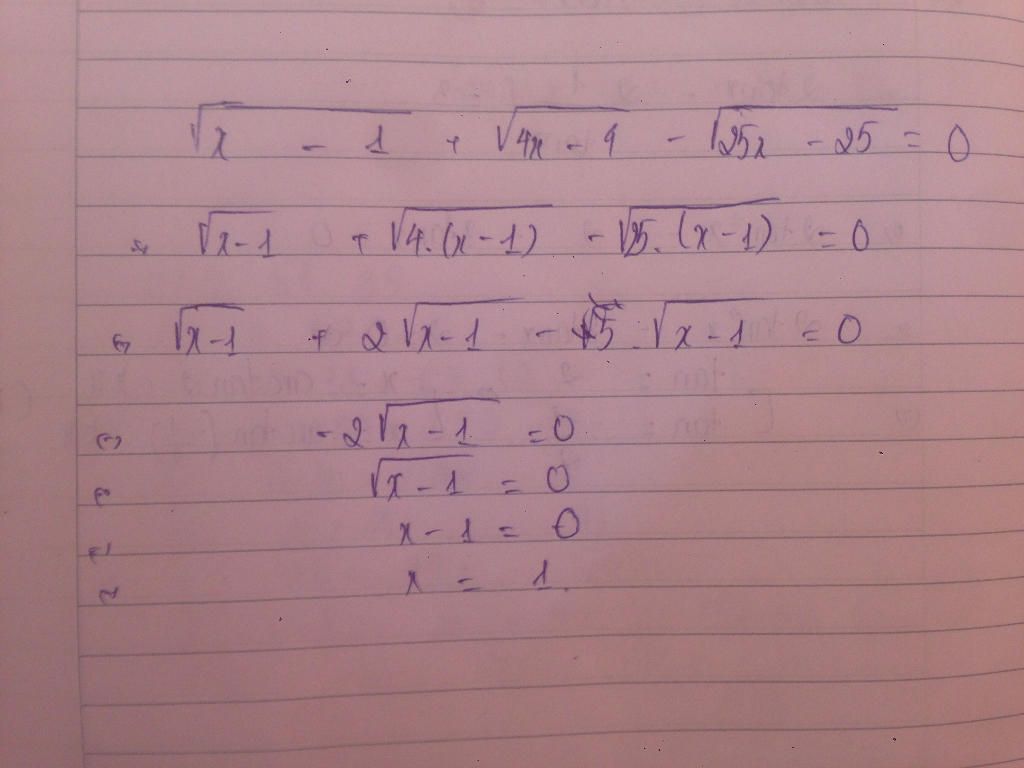 √(x - 1) + √(4x - 4) - √(25x - 25) = 0
⇔ √(x - 1) + √(4.(x - 1)) - √(25.(x - 1)) = 0
⇔ √(x - 1) + 2√(x - 1) - 5.√(x - 1) = 0
⇔ -2√(x - 1) = 0
⇔ √(x - 1) = 0
⇔ x - 1 = 0
⇔ x = 1.